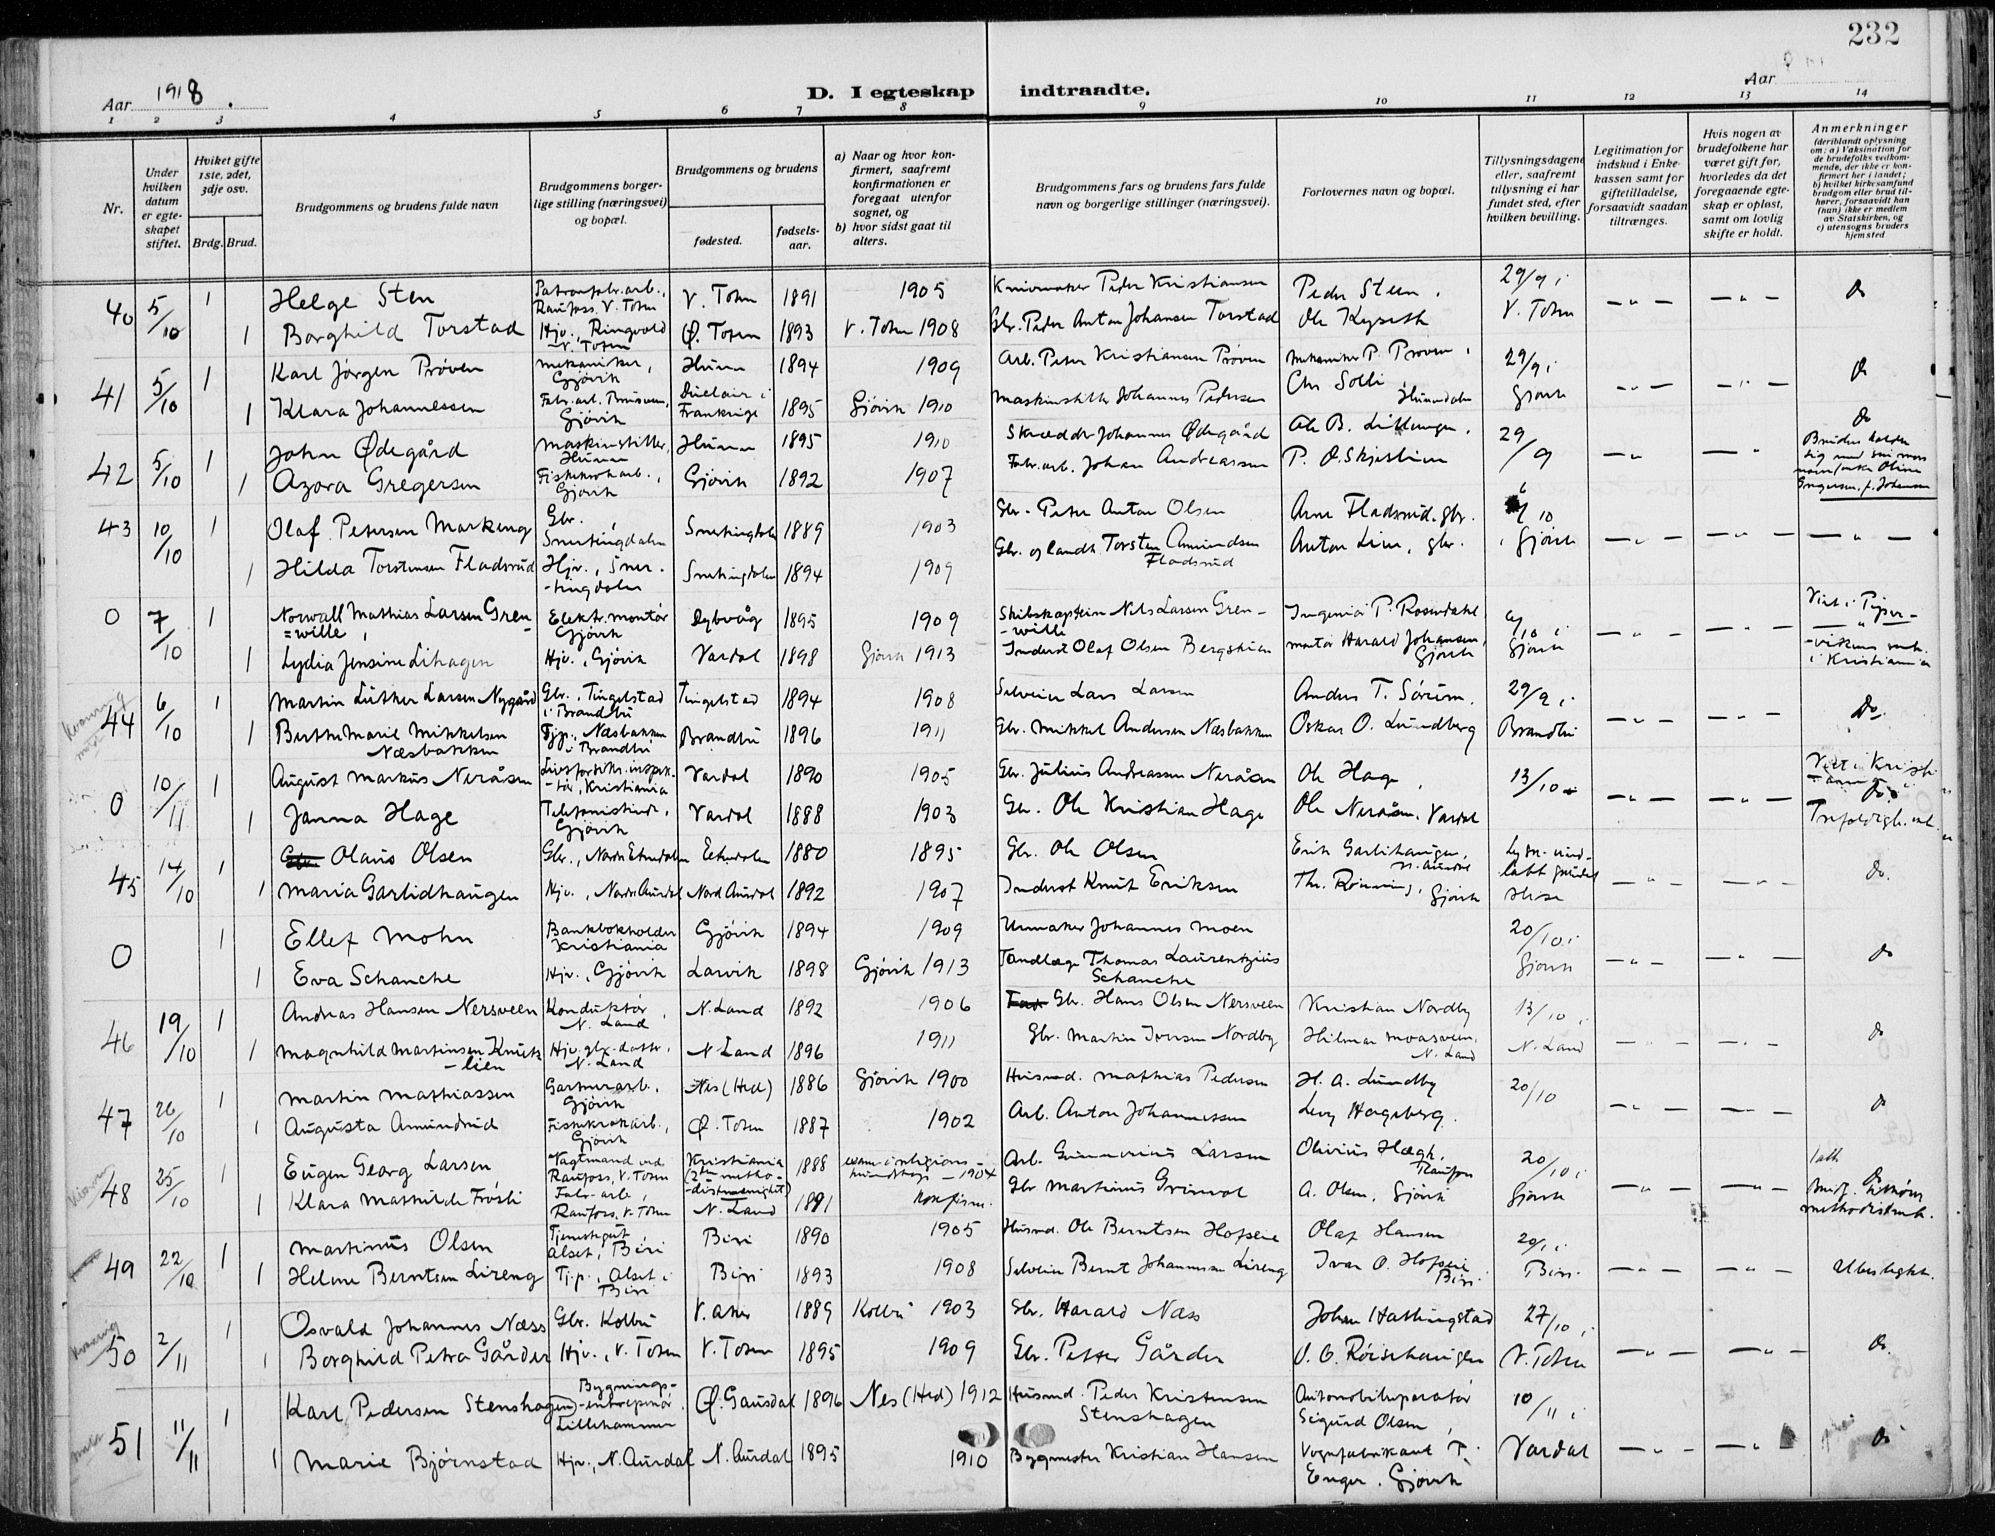 232
Aar 1918.
D. I egteskap indtraadte.
Aar
1 2 3 4 5 6 7 8 9 10 11 12 13 14
Nr.
Under hvilken datum er egteskapet stiftet.
Hviket gifte 1ste, 2det, 3dje osv.
Brdg. Brud.
Brudgommens og brudens fulde navn
Brudgommens borgerlige stilling (næringsvei) og bopæl.
Brudgommens og brudens
fødested.
fødselsaar.
a) Naar og hvor konfirmert, saafremt konfirmationen er foregaat utenfor sognet, og
b) hvor sidst gaat til alters.
Brudgommens fars og brudens fars fulde navn og borgerlige stillinger (næringsvei).
Forlovernes navn og bopæl.
Tillysningsdagene eller, saafremt tillysning ei har fundet sted, efter hvilken bevilling.
Legitimation for indskud i Enkekassen samt for giftetilladelse, forsaavidt saadan tiltrænges.
Hvis nogen av brudefolkene har været gift før, hvorledes da det foregaaende egteskap er opløst, samt om lovlig skifte er holdt.
Anmerkninger (deriblandt oplysning om: a) Vaksination for de brudefolks vedkommende, der ikke er konfirmert her i landet; b) hvilket kirkesamfund brudgom eller brud tilhører, forsaavidt han (hun) ikke er medlem av Statskirken, og c) utensogns bruders hjemsted
40 5/10 1 Helge Sten Patronfabr.arb., Raufoss, V. Toten V. Toten 1891 1905 Knivmaker Peder Kristiansen Peder Steen, 29/9 i — " — — " — Do
1 Borghild Torstad Hjv., Ringvold V. Toten Ø. Toten 1893 V. Toten 1908 Gbr. Peder Anton Johansen Torstad Ole Kyseth V. Toten
41 5/10 1 Karl Jørgen Prøven Mekaniker, Gjövik Hunn 1894 1909 Arb. Peter Kristiansen Prøven Mekaniker P. Prøven, 29/9 i — " — — " — Do
1 Klara Johannessen Fabr.arb. Gjövik Duclair i Frankrige 1895 Gjövik 1910 Maskinstiller Johannes Pedersen Chr. Solli, Hunndalen Gjövik
42 5/10 1 John Ødegård Maskinstiller, Hunn Hunn 1895 1910 Skrædder Johannes Ødegård Ole B. 29/9 — " — " Do
1 Azora Gregersen Fiskekrokarb., Gjövik Gjövik 1892 1907 Fabr.arb. Johan Andreassen P. O. Skjelbien
43 10/10 1 Olaf Petersen Markeng Gbr., Snertingdalen Snertingdalen 1889 1903 Gbr. Peter Anton Olsen Arne Fladsrud, gbr. 10 i Gjövik — " — — " — — " —
1 Hilda Torstensen Fladsrud Hjv., Snertingdalen Snertingdalen 1894 1909 Gbr. og landh. Torsten Amundsen Fladsrud Anton Lien, gbr.
0 7/10 1 Norwall Mathias Larsen Gren=wille, Elektr.montør Gjövik Dybvåg 1895 1909 Skibskaptein Nils Larsen Gren-wille Ingeniør P. Rosendahl 6/10 i — " — — " — Viet i Piper-
1 Lydia Jensine Lihagen Hjv., Gjövik Vardal 1898 Gjövik 1913 Inderst Olaf Olsen Bergstuen Montør Harald Johansen, Gjövik Gjövik -vikens menh. i Kristiania
44 6/10 1 Martin Luther Larsen Nygård Gbr., Tingelstad i Brandbu Tingelstad 1894 1908 Selveier Lars Larsen Anders T. Sörum. 29/9 i — " — — " — Do.
1 Berthe Marie Mikkelsen Næsbakken Tjp., Næsbakken i Brandbu Brandbu 1896 1911 Gbr. Mikkel Andersen Næsbakken Oskar O. Lundberg Brandbu
0 10/11 1 August Markus Neråsen Livsforsikr.inspektør, Kristiania Vardal 1890 1905 Gbr. Julius Andreassen Neråsen Ole Hage, 13/10 — " — — " — Viet i Kristiania
1 Janna Hage Telefonistinde, Gjövik Vardal 1888 1903 Gbr. Ole Kristian Hage Ole Neråsen, Vardal Do. Trefoldigh.
45 14/10 1 Olaus Olsen Gbr., Nordre Etnedalen Etnedalen 1880 1895 Gbr. Ole Olsen Erik Garlihaugen, N. Aurdal — " — — " — Do.
1 Maria Garlidhaugen Hjv., Nordre Aurdal Nord Aurdal 1892 1907 Inderst Knut Eriksen Th. Rönning, Gjövik
0 1 Ellef Mohn Bankbokholder Kristiania Gjövik 1894 1909 Urmaker Johannes Moen 20/10 i — " — — " — Do
1 Eva Schanche Hjv., Gjövik Larvik 1898 Gjövik 1913 Tandlæge Thomas Laurentzius Schanche Gjövik
46 19/10 1 Andreas Hansen Nersveen Konduktør, N. Land N. Land 1892 1906 Gbr. Hans Olsen Nersveen Kristian Nordby 13/10 i — " — — " — Do
1 Magnhild Martinsen Knuts-lien Hjv., gbr.datter, N. Land N. Land 1896 1911 Gbr. Martin Iversen Nordby Hilmar Moasveen, N. Land N. Land
47 26/10 1 Martin Mathiassen Gartnerarb., Gjövik Nes (Hed) 1886 Gjövik 1900 Husmd. Mathias Pedersen H. A. Lundby 20/10 — " — — " — Do
1 Augusta Amundrud Fiskekrokarb., Gjövik Ø. Toten 1887 1902 Arb. Anton Johannessen Levy Hagsberg.
48 25/10 1 Eugen Georg Larsen Vagtmand ved Raufoss, V. Toten Kristiania 1888 1904 Arb. Gunnerius Larsen Olivius Hægh, Raufoss 20/10 i — " — — " — Do
1 Klara Mathilde Frösli Fabr.arb., Raufoss, V. Toten N. Land 1891 Konfirm. Gbr. Martinus Grimvol A. Olsen, Gjövik Gjövik methodistmk.
49 22/10 1 Martinus Olsen Tjenestegut, Alset, Biri Biri 1890 1905 Husmd. Ole Berntsen Hofseie Olaf Hansen 20/ i — " — — " —
1 Helene Berntsen Lireng Tj.p., Alset i Biri Biri 1893 1908 Selveier Bernt Johannesen Lireng Ivar O. Hofseie Biri Biri
50 2/11 1 Osvald Johannes Næss Gbr. Kolbu V. Aker 1889 Kolbu 1903 Gbr. Harald Næss Johan Hattingstad 27/10 i — " — — " — Do.
1 Borghild Petra Gårder Hjv., V. Toten V. Toten 1895 1909 Gbr. Petter Gårder O. O. Röisehaugen V. Toten
51 11/11 1 Karl Pedersen Stenshagen Bygnings-entreprenør. Lillehammer Ø. Gausdal 1896 Nes (Hed) 1912 Husmd. Peder Kristensen Stenshagen Automobilreparatör Sigurd Olsen, 10/11 i — " — — " — Do
1 Marie Bjørnstad Hjv., N. Aurdal N. Aurdal 1895 1910 Bygmester Kristian Hansen Vognfabrikant T. Enger, Gjövik Vardal